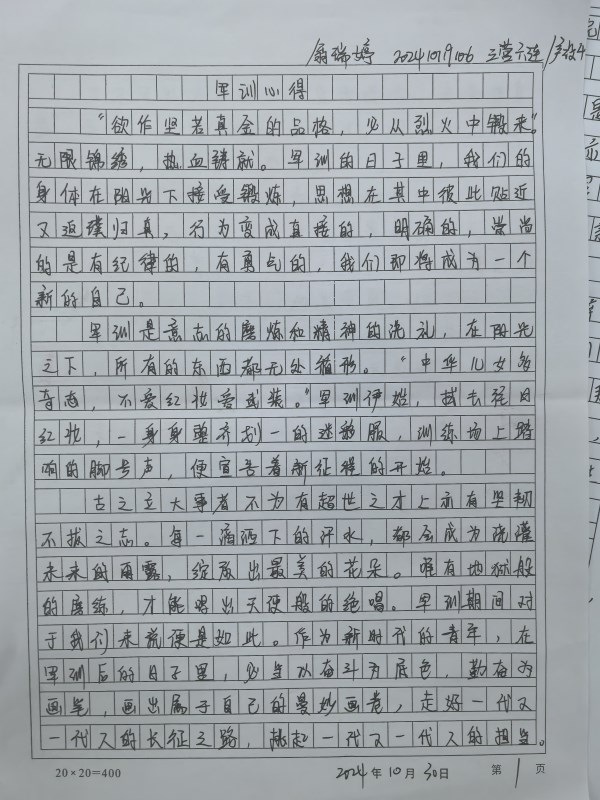 翁瑞婷 20241019106 三营六连
军训心得
“欲作坚若真金的品格，必从烈火中锻来”。
无限锦绣，热血铸就。军训的日子里，我们的
身体在阳光下接受锻炼，思想在其中彼此贴近
又返璞归真，行为变成直接的，明确的，崇尚
的是有纪律的，有勇气的，我们即将成为一个
新的自己。
军训是意志的磨炼和精神的洗礼，在阳光
之下，所有的东西都无处循形。“中华儿女多
奇志，不爱红妆爱武装。”军训伊始，拭去昔日
红妆，一身身整齐划一的迷彩服，训练场上踏
响的脚号声，便宣告着新征程的开始。
古之立大事者不为有超世之才上亦有坚韧
不拔之志。每一滴洒下的汗水，都会成为浇灌
未来的雨露，绽放出最美的花朵。唯有地狱般
的磨练，才能唱出天使般的绝唱。军训期间对
于我们来说便是如此。作为新时代的青年，在
军训后的日子里，必当以奋斗为底色，勤奋为
画笔，画出属于自己的曼妙画卷，走好一代又
一代人的长征之路，挑起一代又一代人的担当。
20×20=400 2024年10月30日 第1页